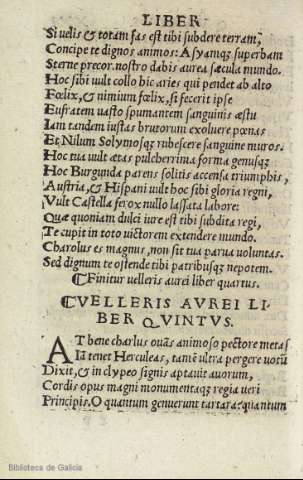 LIBER
Si uelis & totam fas est tibi subdere terram,
Concipe te dignos animos: Asyamq; superbam
Sterne precor. nostro dabis aurea sæcula mundo.
Hoc sibi uult collo hic aries qui pendet ab alto
Fœlix, & nimium fœlix, si fecerit ipse
Eufratem uasto spumantem sanguinis æstu
Iam tandem iustas brutorum exoluere pœnas
Et Nilum Solymosq; rubescere sanguine muros.
Hoc tua uult ætas pulcherrima forma genusq;
Hoc Burgunda parens solitis accensa triumphis,
Austria, & Hispani uult hoc sibi gloria regni,
Vult Castella ferox nullo lassata labore:
Quæ quoniam dulci iure est tibi subdita regi,
Te cupit in toto uictorem extendere mundo.
Charolus es magnus, non sit tua parua uoluntas.
Sed dignum te ostende tibi patribusq; nepotem.
¶Finitur uelleris aurei liber quartus.
¶VELLERIS AVREI LI
BER QVINTVS.
AT bene charlus ouãs animoso pectore metas
Iã tenet Herculeas, tamẽ ultra pergere uotũ
Dixit, & in clypeo signis aptauit auorum,
Cordis opus magni monumentaq; regia ueri
Principis. O quantum genuerunt tartara: quantum
Biblioteca de Galicia